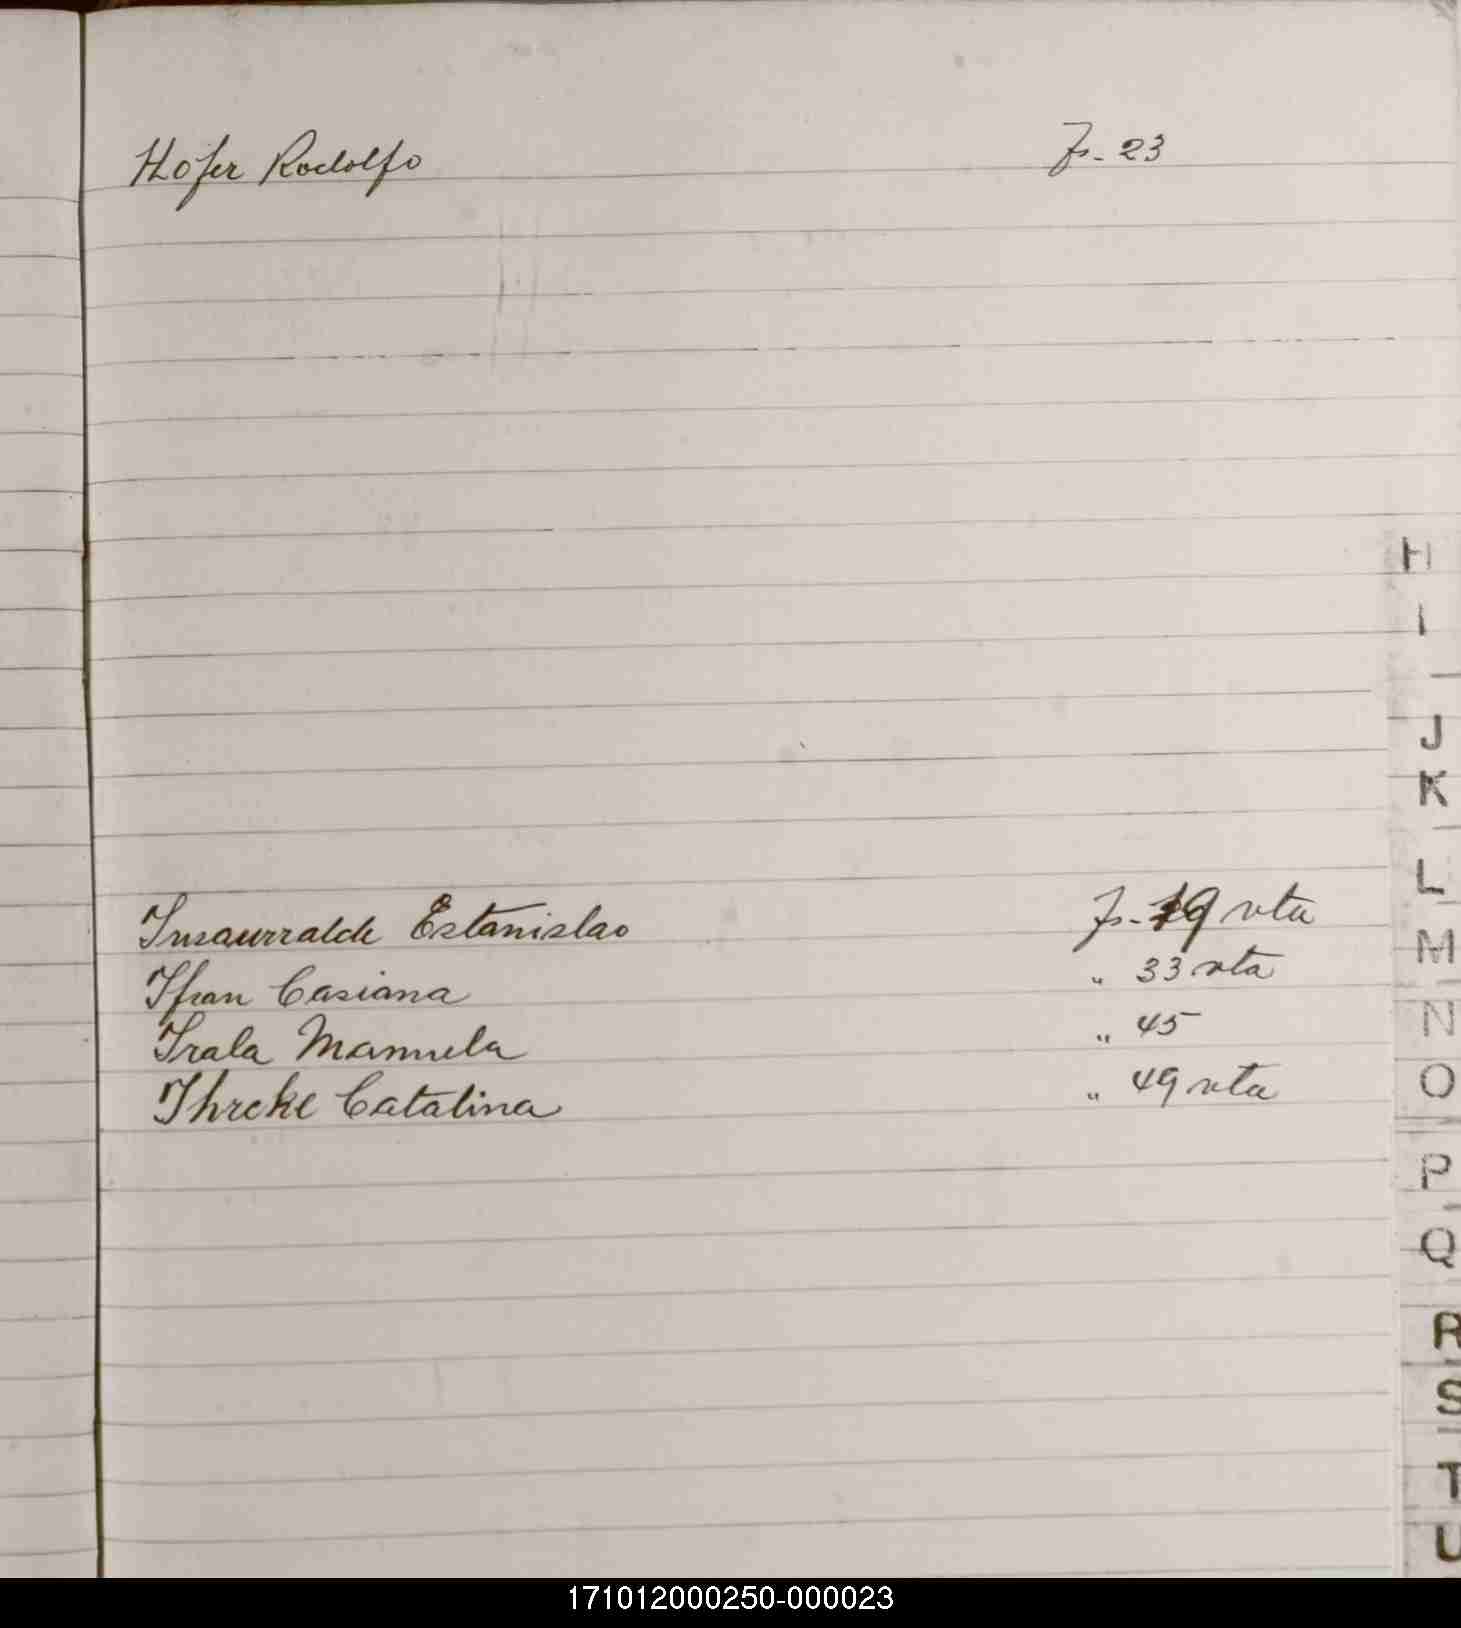 Hofer Rodolfo Fs. 23
Insaurralde Estanislao Fs. 19 vta
Ifran Casiana " 33 vta
Irala Manuela " 45
Threke Catalina " 49 vta
H
I
J
K
L
M
N
O
P
Q
R
S
T
U
171012000250-000023